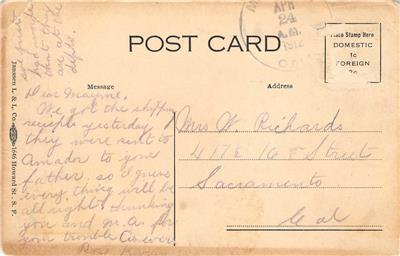 POST CARD
APR
24
A.M.
1912
CAL
Place Stamp Here
DOMESTIC
1c
FOREIGN
2c
Message
Address
Janssen L. & L. Co. 1646 Howard St., S.F.
Dear Mayme,
We got the shipping
receipts yesterday
they were sent to
Amador to your
father. so I guess
every thing will be
all right. Thanking
you and m.a for
your trouble As ever
Mrs W. Richards
417½ 16 Street
Sacramento
Cal
that they
are at the
depto.